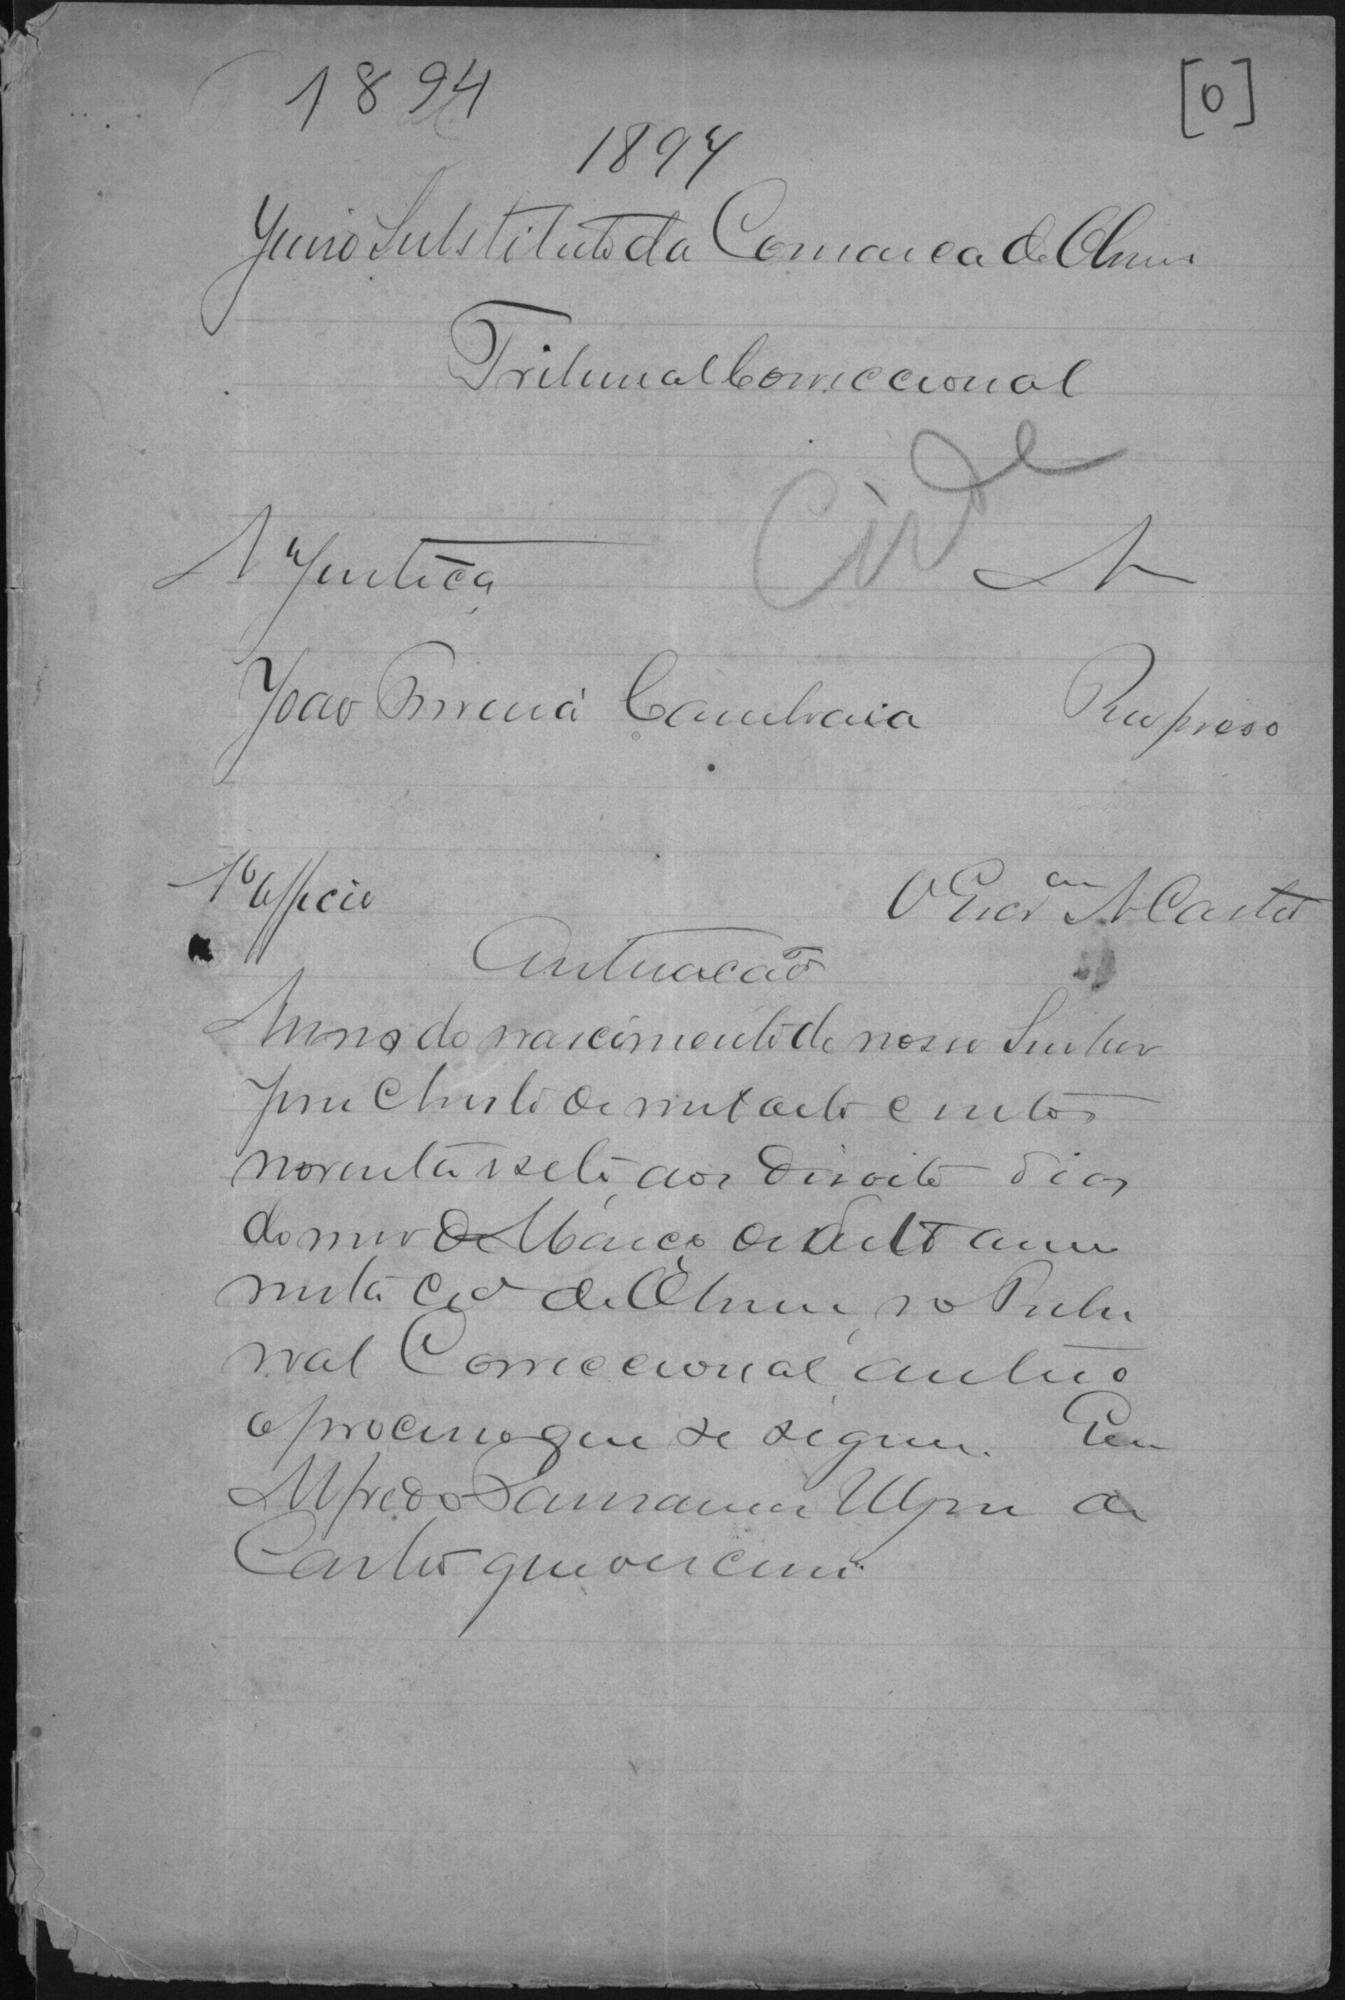 1894
[0]
1894
Juiso Substituto da Comarca de Obyui
Tribunal Correccional
Cide
A Justiça A
João Pereira Cambraia Reo preso
1º officio O Escrᵃᵐ A Castro
Autuacão
Anno do nascimento de nosso Senhor
Jesu Christo de mil oito centos
noventa e sete aos desoito dias
do mes de Março do dito anno
nesta Cid de, no Tribu
nal Correccional autuo
o processo que se segue. Eu
Alfredo de
Castro que escrevi